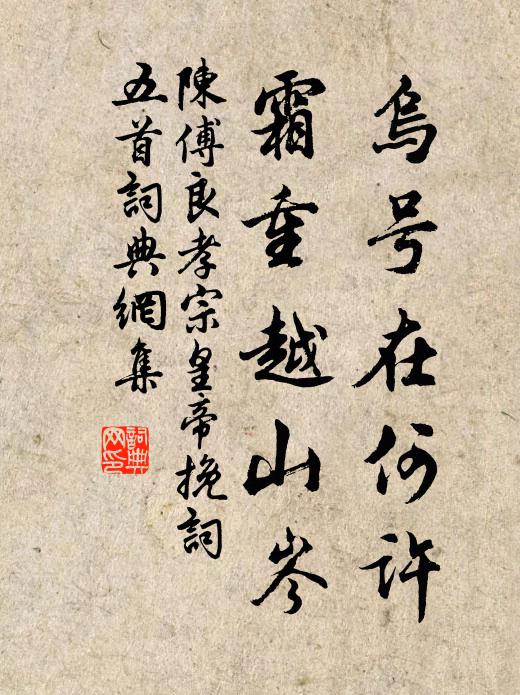 烏号在何許
霜重越山岑
陳傅良孝宗皇帝挽詞
五首詞典網集
詞典
网印